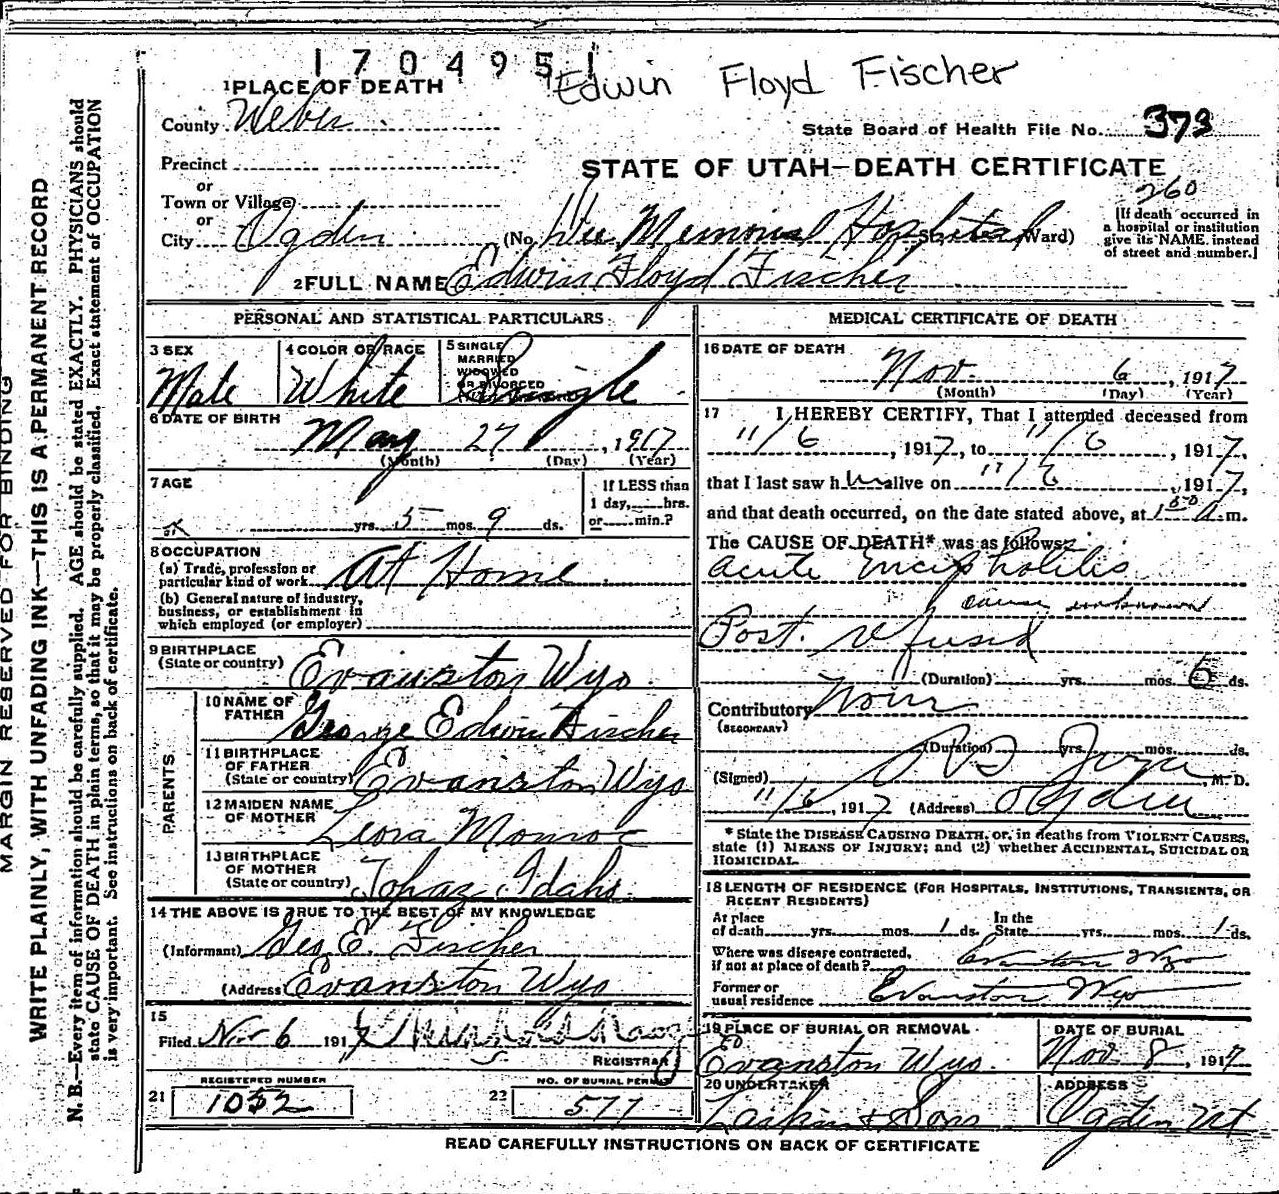 1704951
Edwin Floyd Fischer
1 PLACE OF DEATH
County Weber
State Board of Health File No. 373
Precinct
or
STATE OF UTAH—DEATH CERTIFICATE
Town or Village
or
260
City Ogden (No. Dee Memorial Hospital Ward)
[If death occurred in
a hospital or institution
give its NAME instead
of street and number.]
2 FULL NAME Edwin Floyd Fischer
PERSONAL AND STATISTICAL PARTICULARS
3 SEX
Male
4 COLOR OR RACE
White
5 SINGLE
MARRIED
WIDOWED
OR DIVORCED
Single
6 DATE OF BIRTH
May 27, 1917
(Month) (Day) (Year)
7 AGE
If LESS than
1 day, hrs.
or min.?
yrs. 5 mos. 9 ds.
8 OCCUPATION
(a) Trade, profession or
particular kind of work At Home
(b) General nature of industry,
business, or establishment in
which employed (or employer)
9 BIRTHPLACE
(State or country) Evanston Wyo.
PARENTS
10 NAME OF
FATHER George Edwin Fischer
11 BIRTHPLACE
OF FATHER
(State or country) Evanston Wyo
12 MAIDEN NAME
OF MOTHER Leora Monroe
13 BIRTHPLACE
OF MOTHER
(State or country) Tohaz Idaho.
14 THE ABOVE IS TRUE TO THE BEST OF MY KNOWLEDGE
(Informant) Geo. E. Fischer
(Address Evanston Wyo
15
Filed Nov 6 1917
REGISTRAR
REGISTERED NUMBER
21 1052
NO. OF BURIAL PERMIT
22 577
MEDICAL CERTIFICATE OF DEATH
16 DATE OF DEATH
Nov. 6, 1917
(Month) (Day) (Year)
17 I HEREBY CERTIFY, That I attended deceased from
11/6, 1917, to 11/6, 1917,
that I last saw him alive on 11/6, 1917,
and that death occurred, on the date stated above, at 1 50 A.m.
The CAUSE OF DEATH* was as follows:
Acute Encepholitis
cause unknown
Post. refused
(Duration) yrs. mos. 6 ds.
Contributory None
(SECONDARY)
(Duration) yrs. mos. ds.
(Signed) M. D.
11/6, 1917 (Address) Ogden
* State the DISEASE CAUSING DEATH, or, in deaths from VIOLENT CAUSES,
state (1) MEANS OF INJURY; and (2) whether ACCIDENTAL, SUICIDAL OR
HOMICIDAL.
18 LENGTH OF RESIDENCE (FOR HOSPITALS, INSTITUTIONS, TRANSIENTS, OR
RECENT RESIDENTS)
At place
of death yrs. mos. 1 ds.
In the
State yrs. mos. 1 ds.
Where was disease contracted,
if not at place of death? Evanston Wyo
Former or
usual residence Evanston Wyo
19 PLACE OF BURIAL OR REMOVAL
Evanston Wyo.
DATE OF BURIAL
Nov. 8, 1917
20 UNDERTAKER
Larkin & Sons
ADDRESS
Ogden Ut
READ CAREFULLY INSTRUCTIONS ON BACK OF CERTIFICATE
MARGIN RESERVED FOR BINDING
WRITE PLAINLY, WITH UNFADING INK—THIS IS A PERMANENT RECORD
N. B.—Every item of information should be carefully supplied. AGE should be stated EXACTLY. PHYSICIANS should
state CAUSE OF DEATH in plain terms, so that it may be properly classified. Exact statement of OCCUPATION
is very important. See instructions on back of certificate.